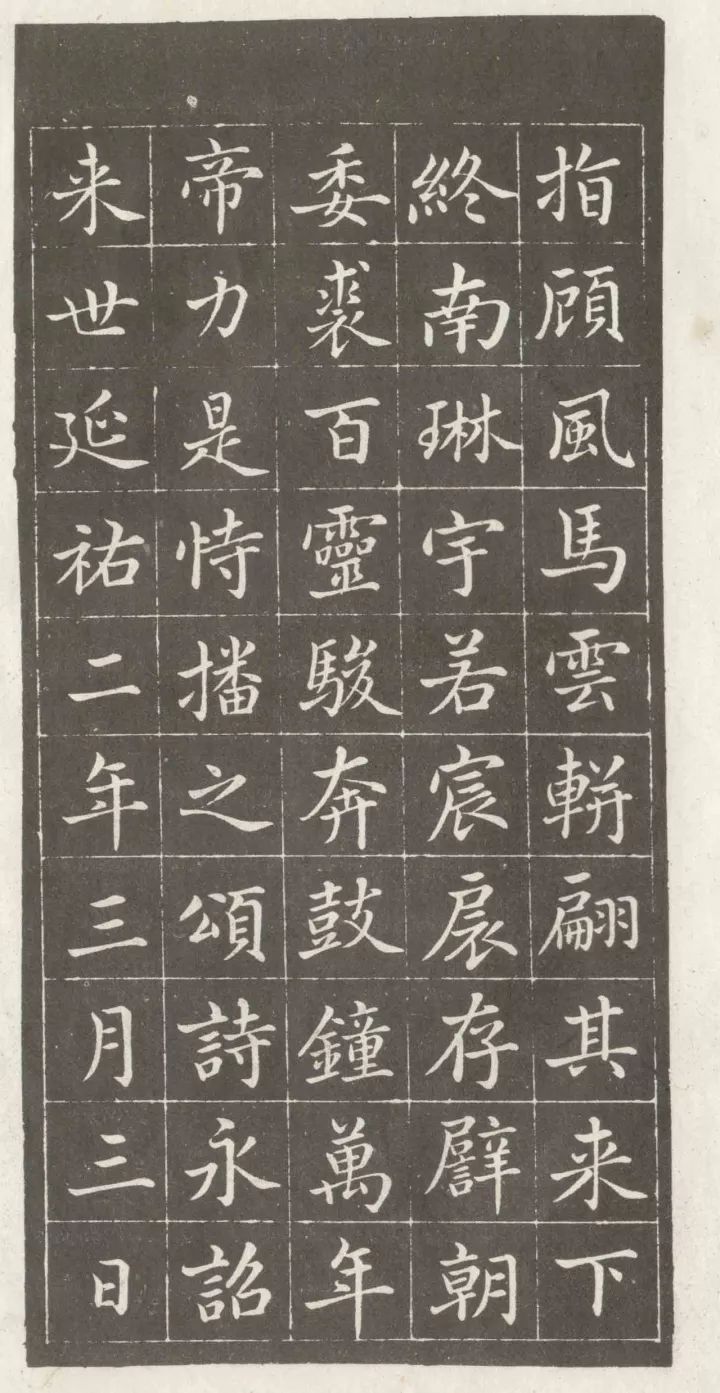 指顧風馬雲軿翩其来下
終南琳宇若宸扆存譬朝
委裘百靈駿奔鼓鐘萬年
帝力是恃播之頌詩永詔
来世延祐二年三月三日